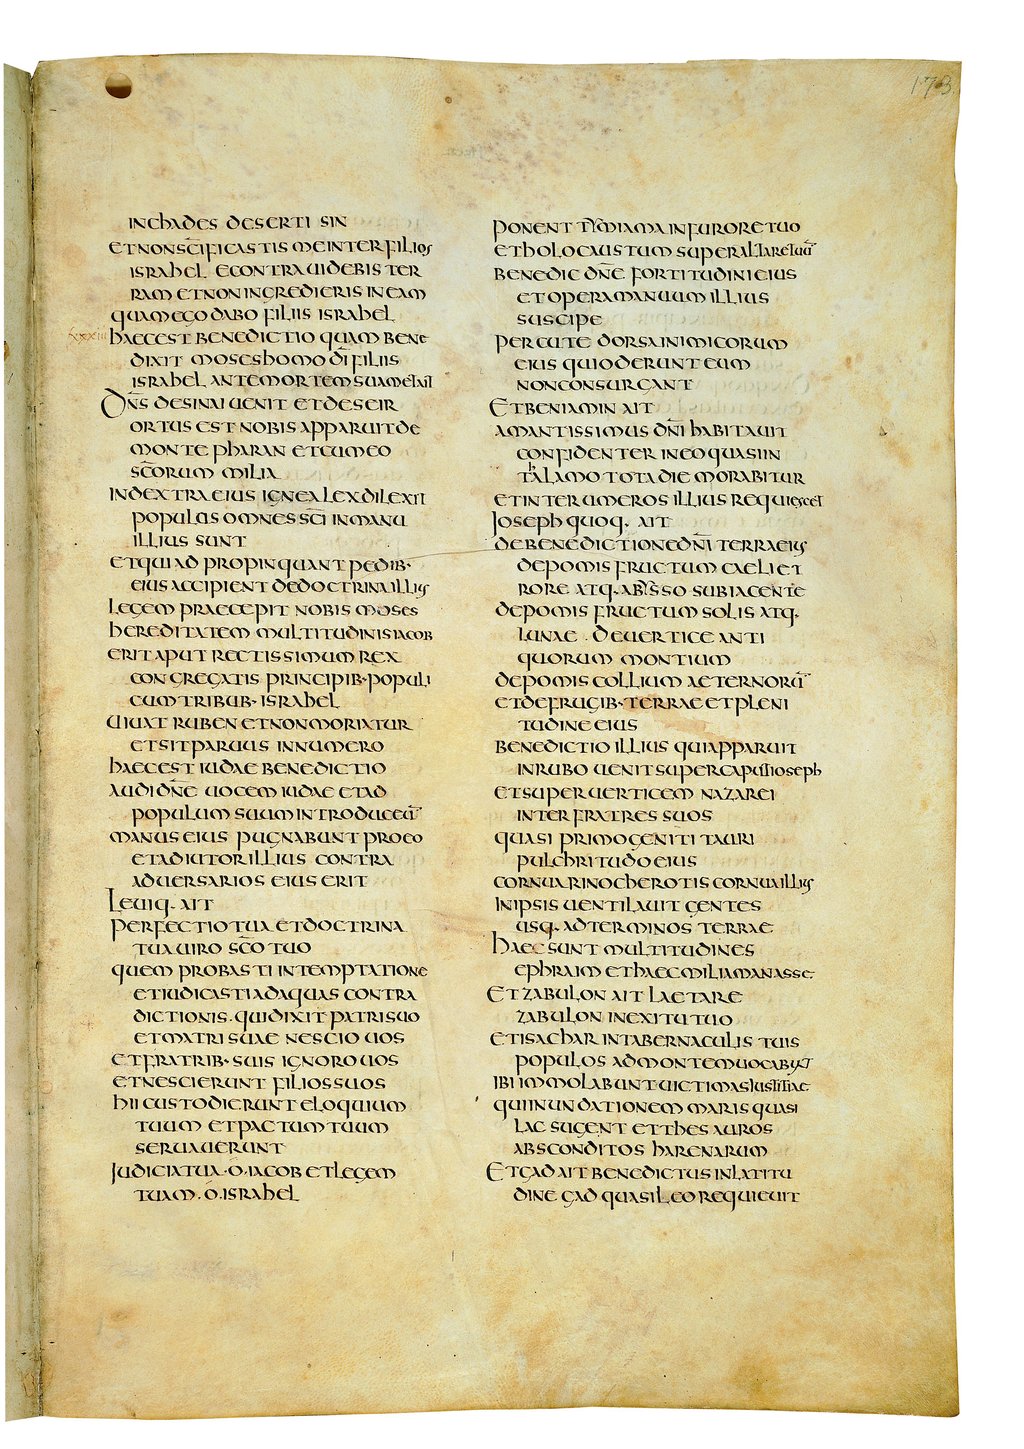 173
IN CHADES DESERTI SIN
ET NON SC̄IFICASTIS ME INTER FILIOS
ISRAHEL E CONTRA UIDEBIS TER
RAM ET NON INGREDIERIS IN EAM
QUAM EGO DABO FILIIS ISRAHEL
XXXIII HAEC EST BENEDICTIO QUAM BENE
DIXIT MOSES HOMO DĪ FILIIS
ISRAHEL ANTE MORTEM SUAM ET AIT
DN̄S DE SINAI UENIT ET DE SEIR
ORTUS EST NOBIS APPARUIT DE
MONTE PHARAN ET CUM EO
SC̄ORUM MILIA
IN DEXTRA EIUS IGNEA LEX DILEXIT
POPULOS OMNES SC̄I IN MANU
ILLIUS SUNT
ET QUI ADPROPINQUANT PEDIB·
EIUS ACCIPIENT DE DOCTRINA ILLIUS
LEGEM PRAECEPIT NOBIS MOSES
HEREDITATEM MULTITUDINIS IACOB
ERIT APUT RECTISSIMUM REX
CONGREGATIS PRINCIPIB· POPULI
CUM TRIBUB· ISRAHEL
UIUAT RUBEN ET NON MORIATUR
ET SIT PARUUS IN NUMERO
HAEC EST IUDAE BENEDICTIO
AUDI DN̄E UOCEM IUDAE ET AD
POPULUM SUUM INTRODUC EŪ
MANUS EIUS PUGNABUNT PRO EO
ET ADIUTOR ILLIUS CONTRA
ADUERSARIOS EIUS ERIT
LEUI Q· AIT
PERFECTIO TUA ET DOCTRINA
TUA UIRO SC̄O TUO
QUEM PROBASTI IN TEMPTATIONE
ET IUDICASTI AD AQUAS CONTRA
DICTIONIS · QUI DIXIT PATRI SUO
ET MATRI SUAE NESCIO UOS
ET FRATRIB· SUIS IGNORO UOS
ET NESCIERUNT FILIOS SUOS
HII CUSTODIERUNT ELOQUIUM
TUUM ET PACTUM TUUM
SERUAUERUNT
IUDICIA TUA · O · IACOB ET LEGEM
TUAM · O · ISRAHEL
PONENT THYMIAMA IN FURORE TUO
ET HOLOCAUSTUM SUPER ALTARE TUŪ
BENEDIC DN̄E FORTITUDINI EIUS
ET OPERA MANUUM ILLIUS
SUSCIPE
PERCUTE DORSA INIMICORUM
EIUS QUI ODERUNT EUM
NON CONSURGANT
ET BENIAMIN AIT
AMANTISSIMUS DN̄I HABITAUIT
CONFIDENTER IN EO QUASI IN
THALAMO TOTA DIE MORABITUR
ET INTER UMEROS ILLIUS REQUIESCET
IOSEPH QUOQ· AIT
DE BENEDICTIONE DN̄I TERRA EIUS
DE POMIS FRUCTUM CAELI ET
RORE ATQ· ABYSSO SUBIACENTE
DE POMIS FRUCTUM SOLIS ATQ·
LUNAE · DE UERTICE ANTI
QUORUM MONTIUM
DE POMIS COLLIUM AETERNORŪ
ET DE FRUGIB· TERRAE ET PLENI
TUDINE EIUS
BENEDICTIO ILLIUS QUI APPARUIT
IN RUBO UENIT SUPER CAPUT IOSEPH
ET SUPER UERTICEM NAZAREI
INTER FRATRES SUOS
QUASI PRIMOGENITI TAURI
PULCHRITUDO EIUS
CORNUA RINOCHEROTIS CORNUA ILLIUS
IN IPSIS UENTILAUIT GENTES
USQ· AD TERMINOS TERRAE
HAEC SUNT MULTITUDINES
EPHRAIM ET HAEC MILIA MANASSE·
ET ZABULON AIT LAETARE
ZABULON IN EXITU TUO
ET ISACHAR IN TABERNACULIS TUIS
POPULOS AD MONTEM UOCABUNT
IBI IMMOLABUNT UICTIMAS IUSTITIAE
QUI INUNDATIONEM MARIS QUASI
LAC SUGENT ET THESAUROS
ABSCONDITOS HARENARUM
ET GAD AIT BENEDICTUS IN LATITU
DINE GAD QUASI LEO REQUIEUIT